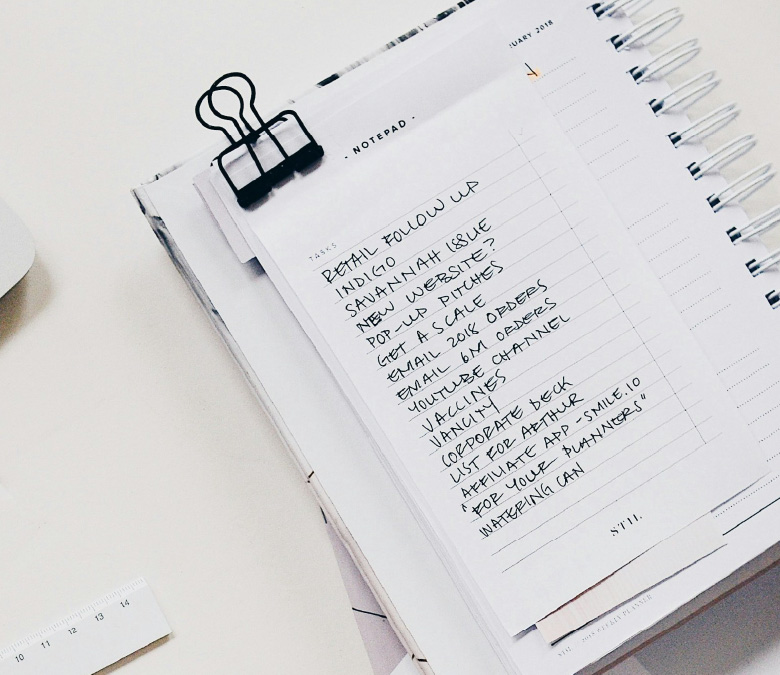 UARY 2018
- NOTEPAD -
TASKS
RETAIL FOLLOW UP
INDIGO
SAVANNAH ISSUE
NEW WEBSITE?
POP-UP PITCHES
GET A SCALE
EMAIL 2018 ORDERS
EMAIL 6M ORDERS
YOUTUBE CHANNEL
VACCINES
VANCITY
CORPORATE DECK
LIST FOR ARTHUR
AFFILIATE APP - SMILE.IO
"FOR YOUR PLANNERS"
WATERING CAN
STIL
STIL 2018 WEEKLY PLANNER
10 11 12 13 14